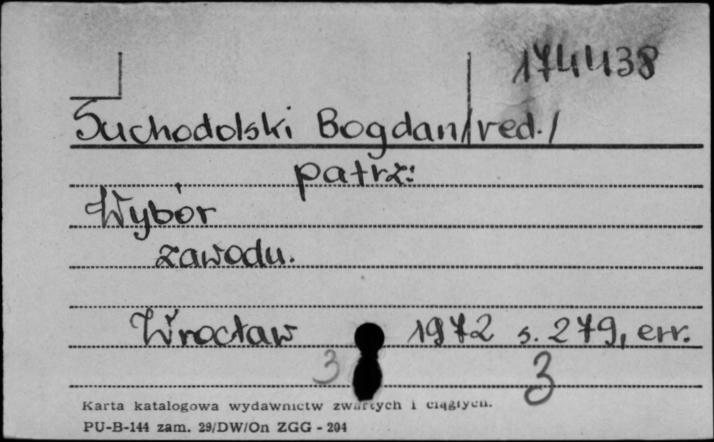 174438
Suchodolski Bogdan/red./
patrz:
Wybór
zawodu.
Wrocław 1972 s. 279, err.
3 3
Karta katalogowa wydawnictw zwartych i ciągłych.
PU-B-144 zam. 29/DW/On ZGG - 204